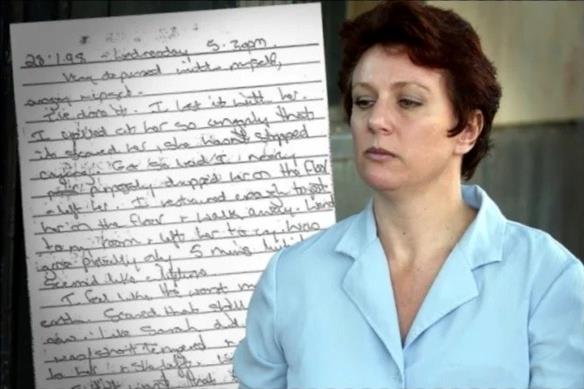 28.1.98 - Wednesday 5.30pm.
Very depressed with myself,
angry + upset.
I've done it. I lost it with her.
I yelled at her so angrily that
it scared her, she hasn't stopped
crying. Got so bad I nearly
purposely dropped her on the floor
+ left her. I restrained enough to put
her on the floor + walk away. I went
to my room + left her to cry. Was
gone probably only 5 mins, but it
Seemed like a lifetime.
I feel like the worst
earth. Scared that
now. like Sarah did
was short tempered
to her